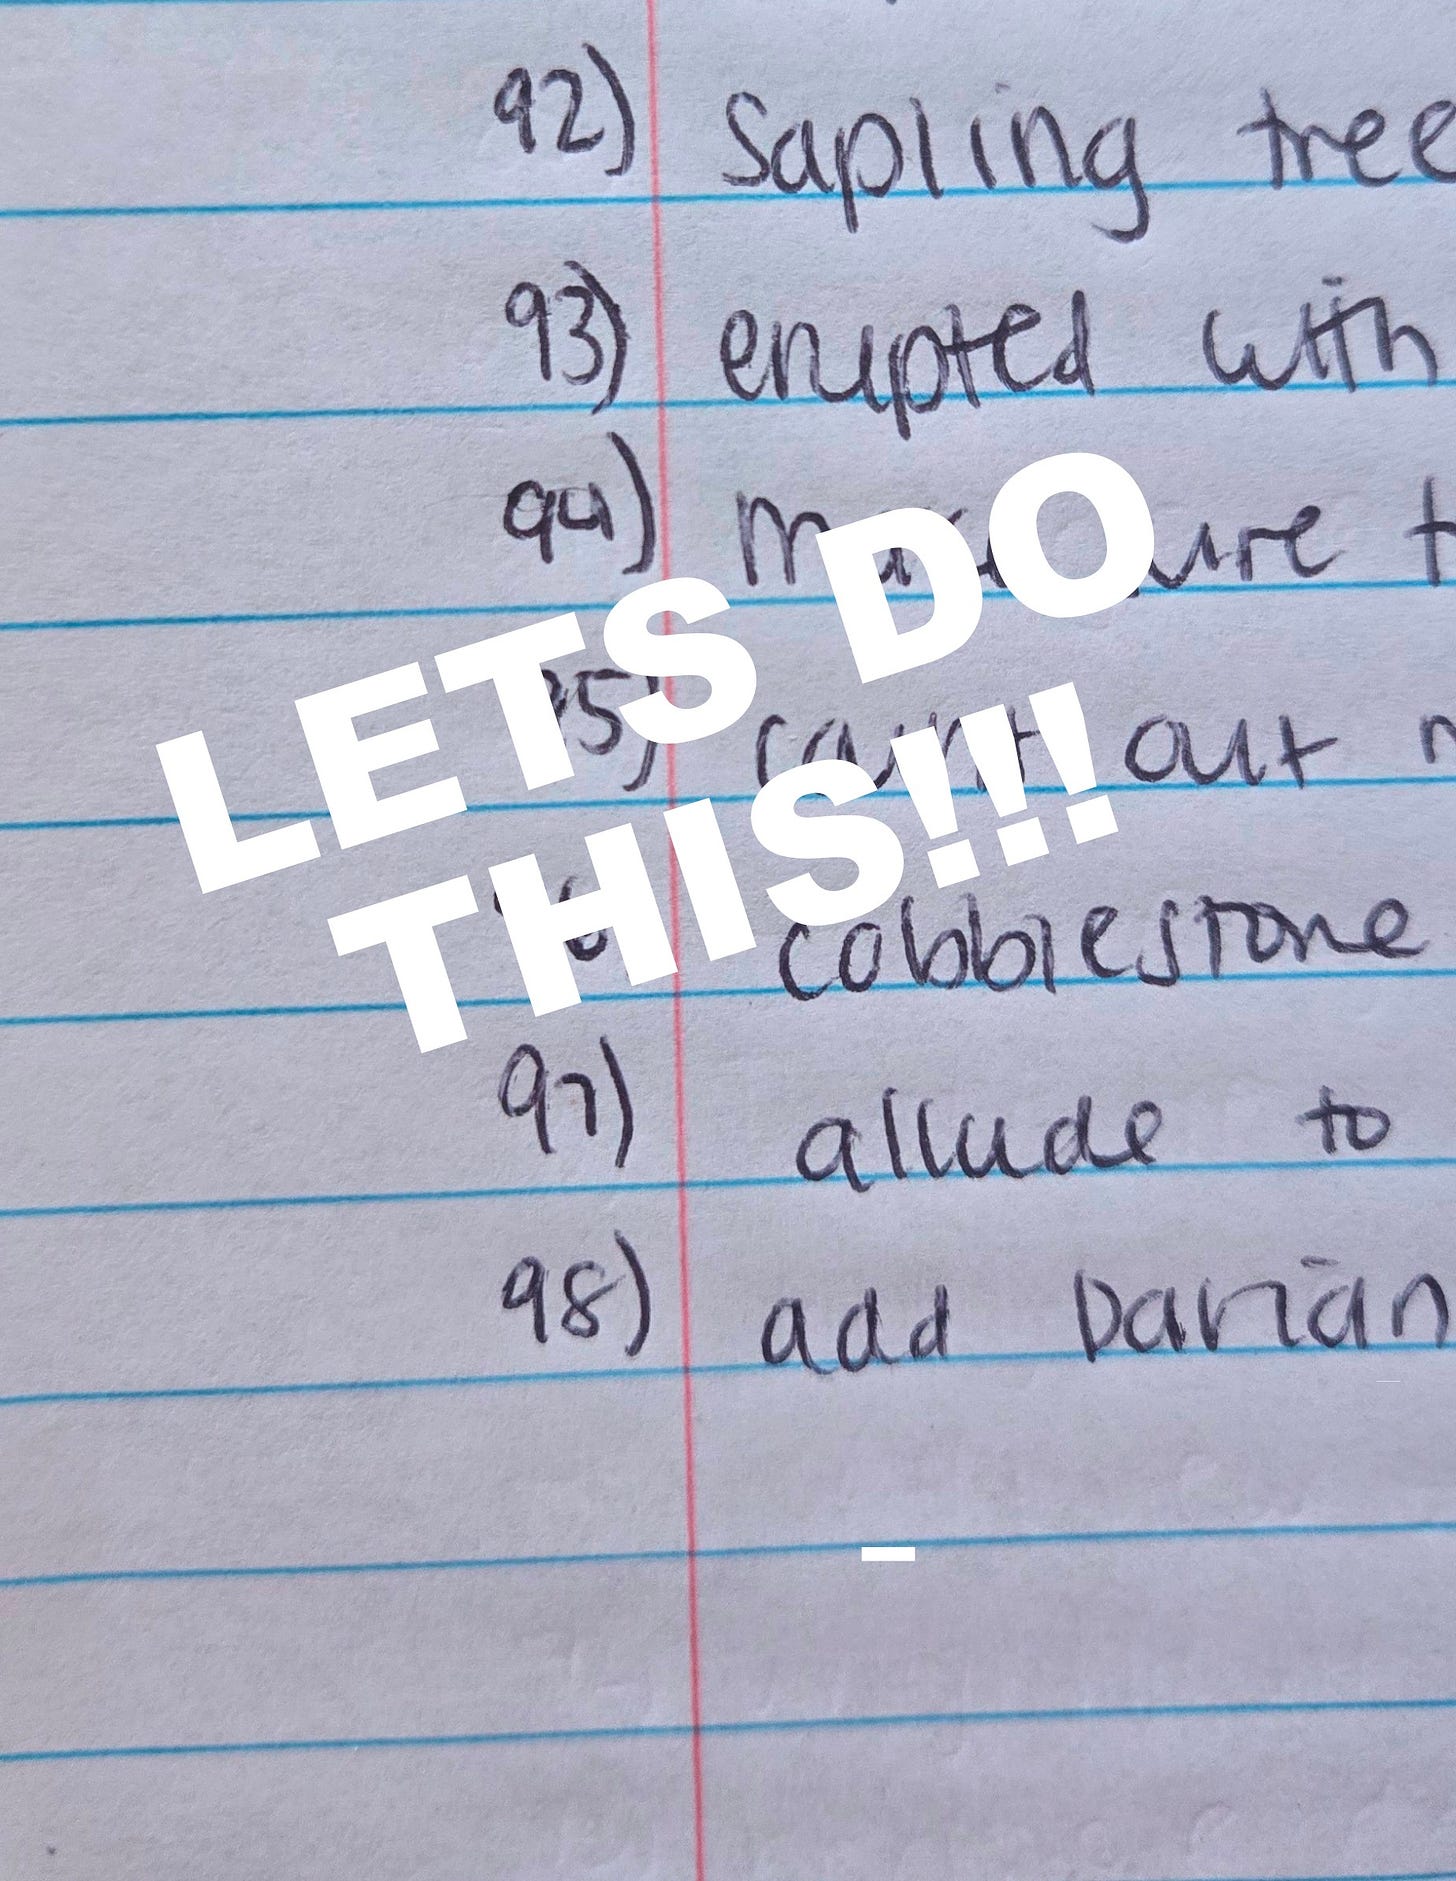 92) Sapling tree
93) erupted with
94)
LETS DO
95) count out
THIS!!!
cobblestone
97) allude to
98) add Darian